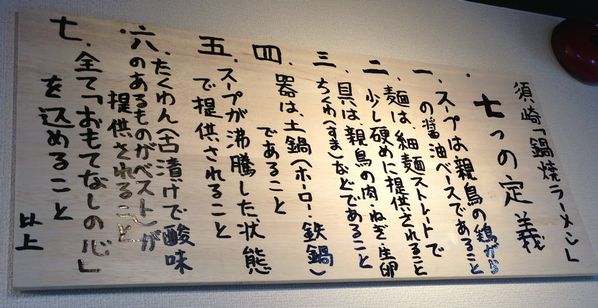 須崎「鍋焼ラーメン」
・七つの定義
一．スープは親鳥の鶏がら
の醤油ベースであること
二．麺は、細麺ストレートで
少し硬めに提供されること
三．具は、親鳥の肉・ねぎ・生卵
ちくわ(すまき)などであること
四．器は、土鍋(ホーロー・鉄鍋)
であること
五．スープが沸騰した状態
で提供されること
六．たくわん(古漬けで酸味
のあるものがベスト)が
提供されること
七．全て「おもてなしの心」
を込めること
以上